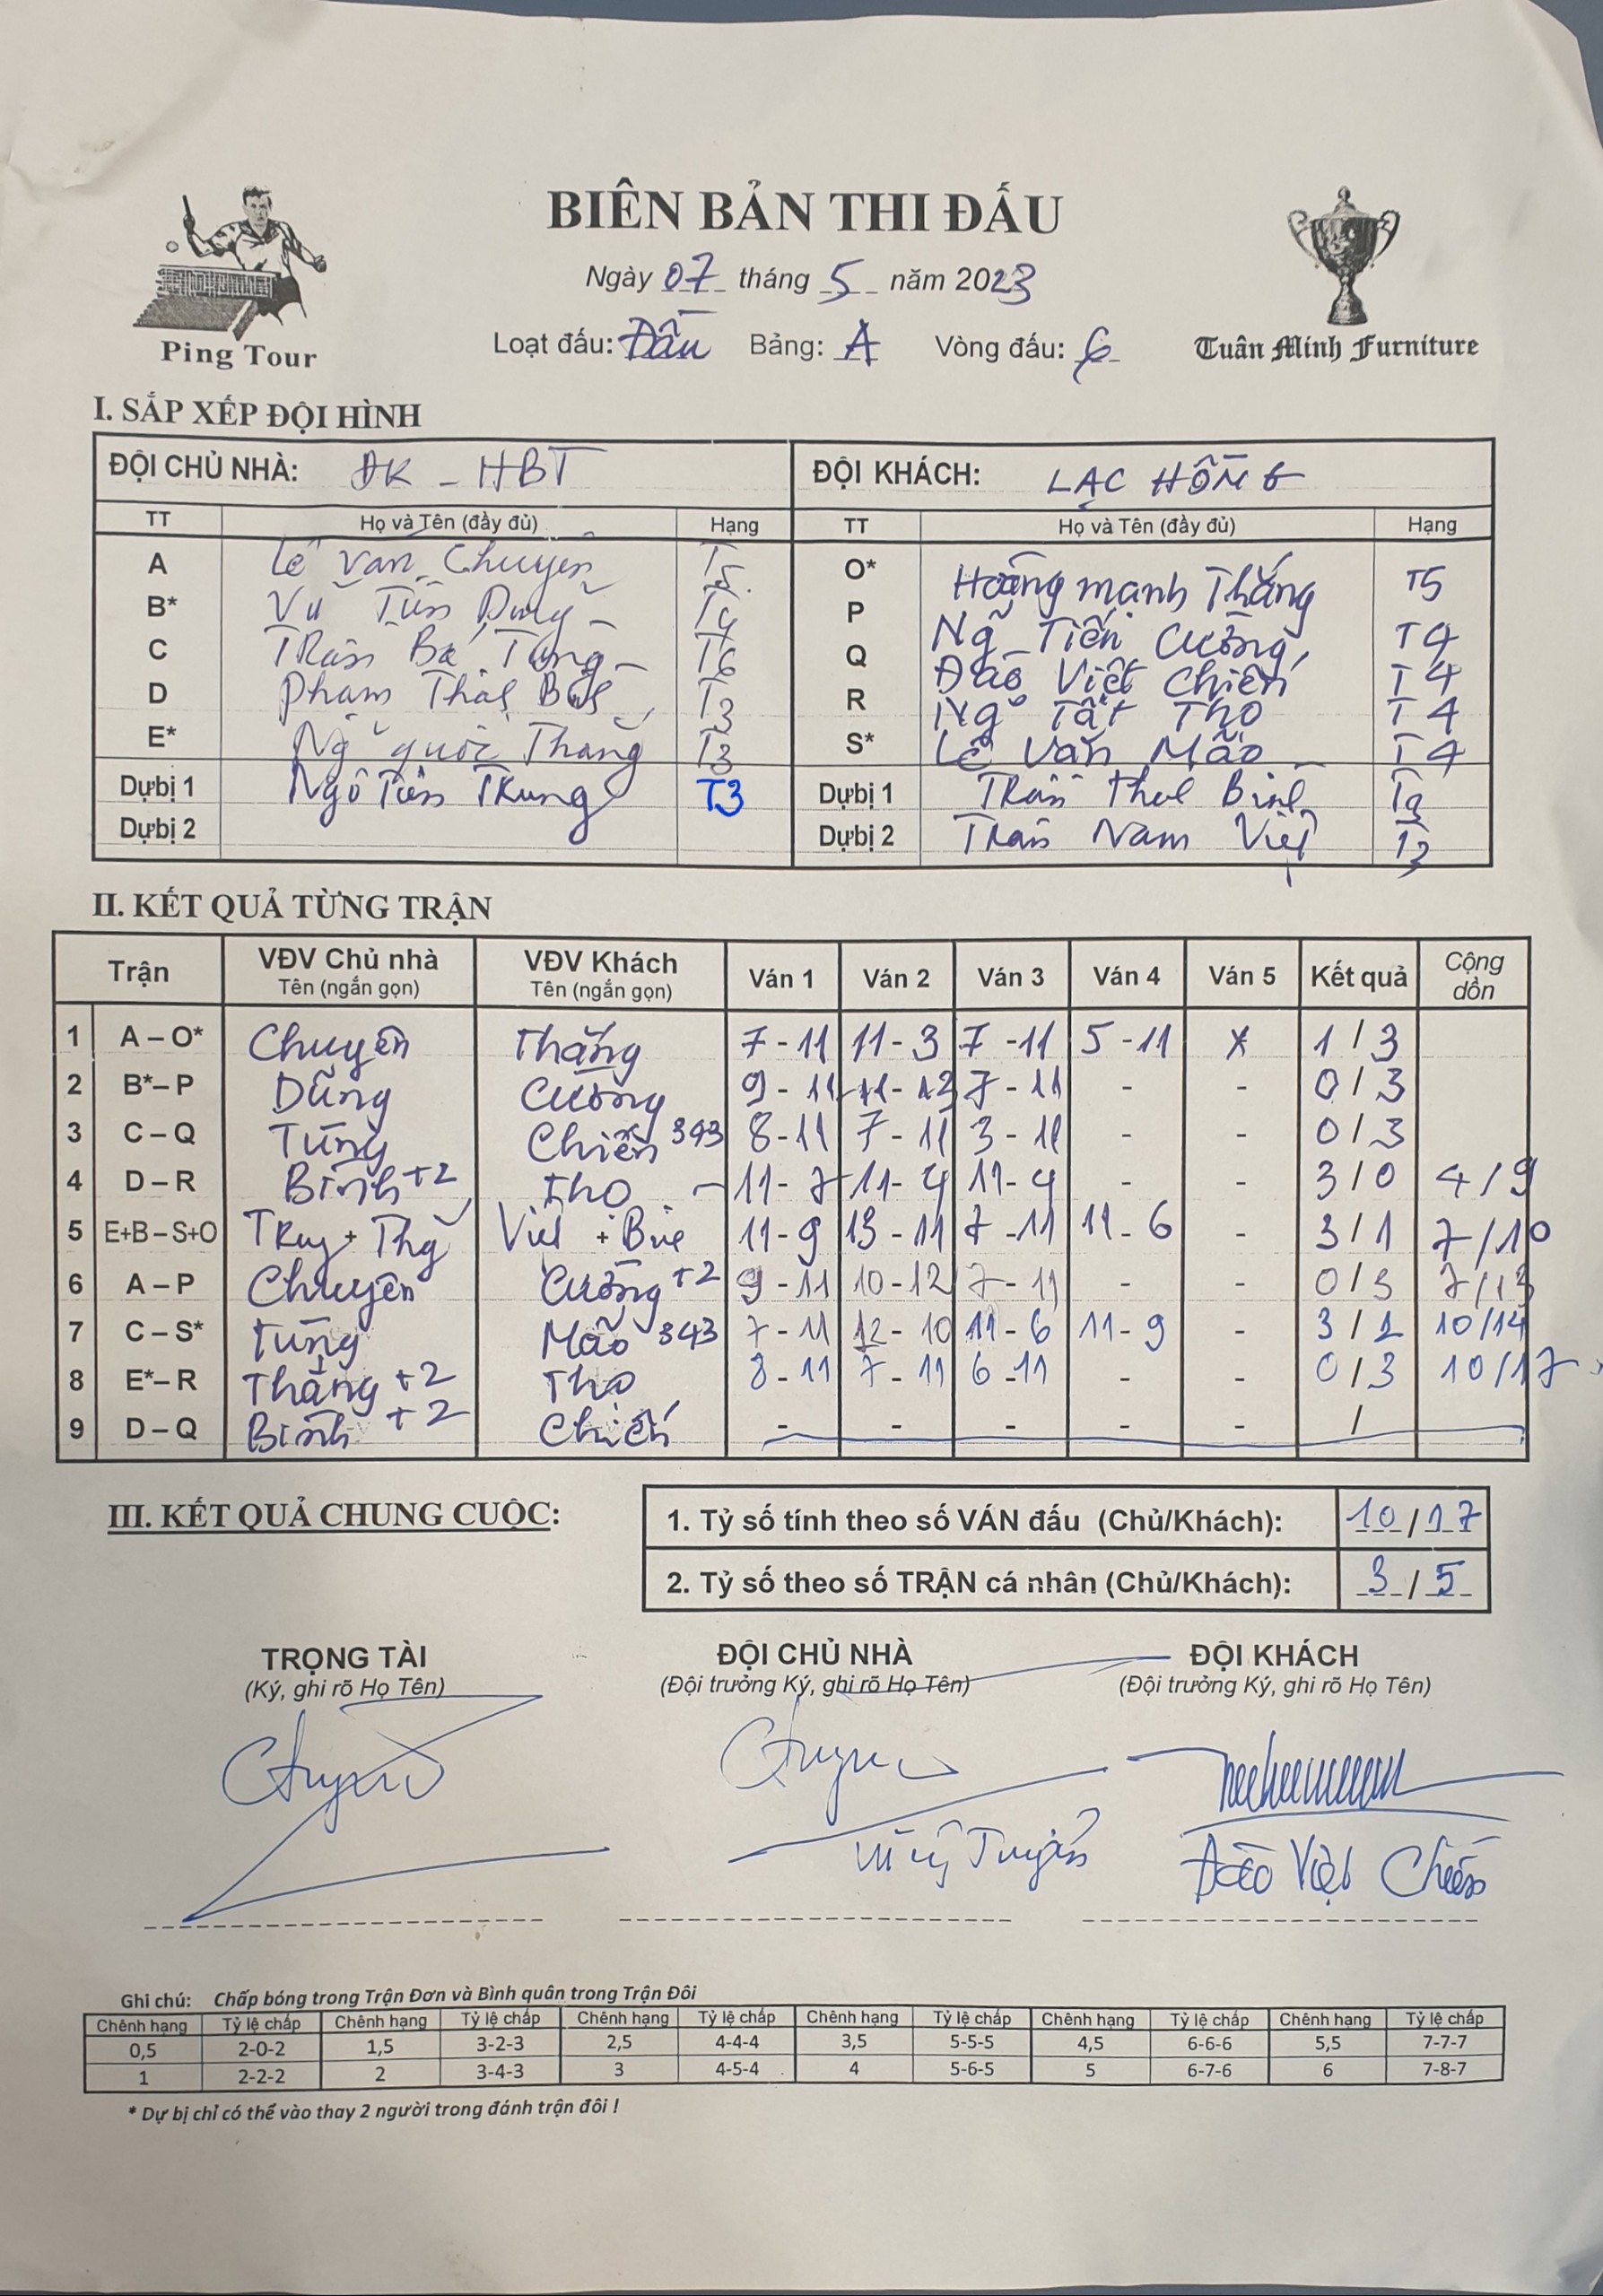 BIÊN BẢN THI ĐẤU
Ngày 07 tháng 5 năm 2023
Loạt đấu: Đấu Bảng: A Vòng đấu: 6
Ping Tour
Tuân Minh Furniture
I. SẮP XẾP ĐỘI HÌNH
ĐỘI CHỦ NHÀ: ĐK - HBT ĐỘI KHÁCH: LẠC HỒNG
TT Họ và Tên (đầy đủ) Hạng TT Họ và Tên (đầy đủ) Hạng
A Lê Văn Chuyên T5 O* Hoàng mạnh Thắng T5
B* Vũ Tiến Dũng T4 P Ng Tiến Cường T4
C Trần Bá Tùng T6 Q Đào Việt Chiến T4
D Phạm Thái T3 R Ngô Tất Thọ T4
E* Ng quốc Thắng T3 S* Lê Văn Mão T4
Dựbị 1 Ngô Tiến Trung T3 Dựbị 1 Trần
Dựbị 2 Dựbị 2 Trần Nam Việt T3
II. KẾT QUẢ TỪNG TRẬN
Trận VĐV Chủ nhà VĐV Khách Ván 1 Ván 2 Ván 3 Ván 4 Ván 5 Kết quả Cộng dồn
Tên (ngắn gọn) Tên (ngắn gọn)
1 A – O* Chuyên Thắng 7 - 11 11 - 3 7 - 11 5 - 11 x 1 / 3
2 B*– P Dũng Cường 9 - 11 11 - 13 7 - 11 - - 0 / 3
3 C – Q Tùng Chiến 343 8 - 11 7 - 11 3 - 11 - - 0 / 3
4 D – R Bình +2 Thọ 11 - 7 11 - 4 11 - 4 - - 3 / 0 4 / 9
5 E+B – S+O Việt + 11 - 9 13 - 11 7 - 11 11 - 6 - 3 / 1 7 / 10
6 A – P Chuyên Cường +2 9 - 11 10 - 12 7 - 11 - - 0 / 3 7 / 13
7 C – S* Tùng Mão 343 7 - 11 12 - 10 11 - 6 11 - 9 - 3 / 1 10 / 14
8 E*– R Thắng +2 Thọ 8 - 11 7 - 11 6 - 11 - - 0 / 3 10 / 17
9 D – Q Bình +2 Chiến - - - - - /
III. KẾT QUẢ CHUNG CUỘC:
1. Tỷ số tính theo số VÁN đấu (Chủ/Khách): 10 / 17
2. Tỷ số theo số TRẬN cá nhân (Chủ/Khách): 3 / 5
TRỌNG TÀI ĐỘI CHỦ NHÀ ĐỘI KHÁCH
(Ký, ghi rõ Họ Tên) (Đội trưởng Ký, ghi rõ Họ Tên) (Đội trưởng Ký, ghi rõ Họ Tên)
Đào Việt Chiến
Ghi chú: Chấp bóng trong Trận Đơn và Bình quân trong Trận Đôi
Chênh hạng Tỷ lệ chấp Chênh hạng Tỷ lệ chấp Chênh hạng Tỷ lệ chấp Chênh hạng Tỷ lệ chấp Chênh hạng Tỷ lệ chấp Chênh hạng Tỷ lệ chấp
0,5 2-0-2 1,5 3-2-3 2,5 4-4-4 3,5 5-5-5 4,5 6-6-6 5,5 7-7-7
1 2-2-2 2 3-4-3 3 4-5-4 4 5-6-5 5 6-7-6 6 7-8-7
* Dự bị chỉ có thể vào thay 2 người trong đánh trận đôi !